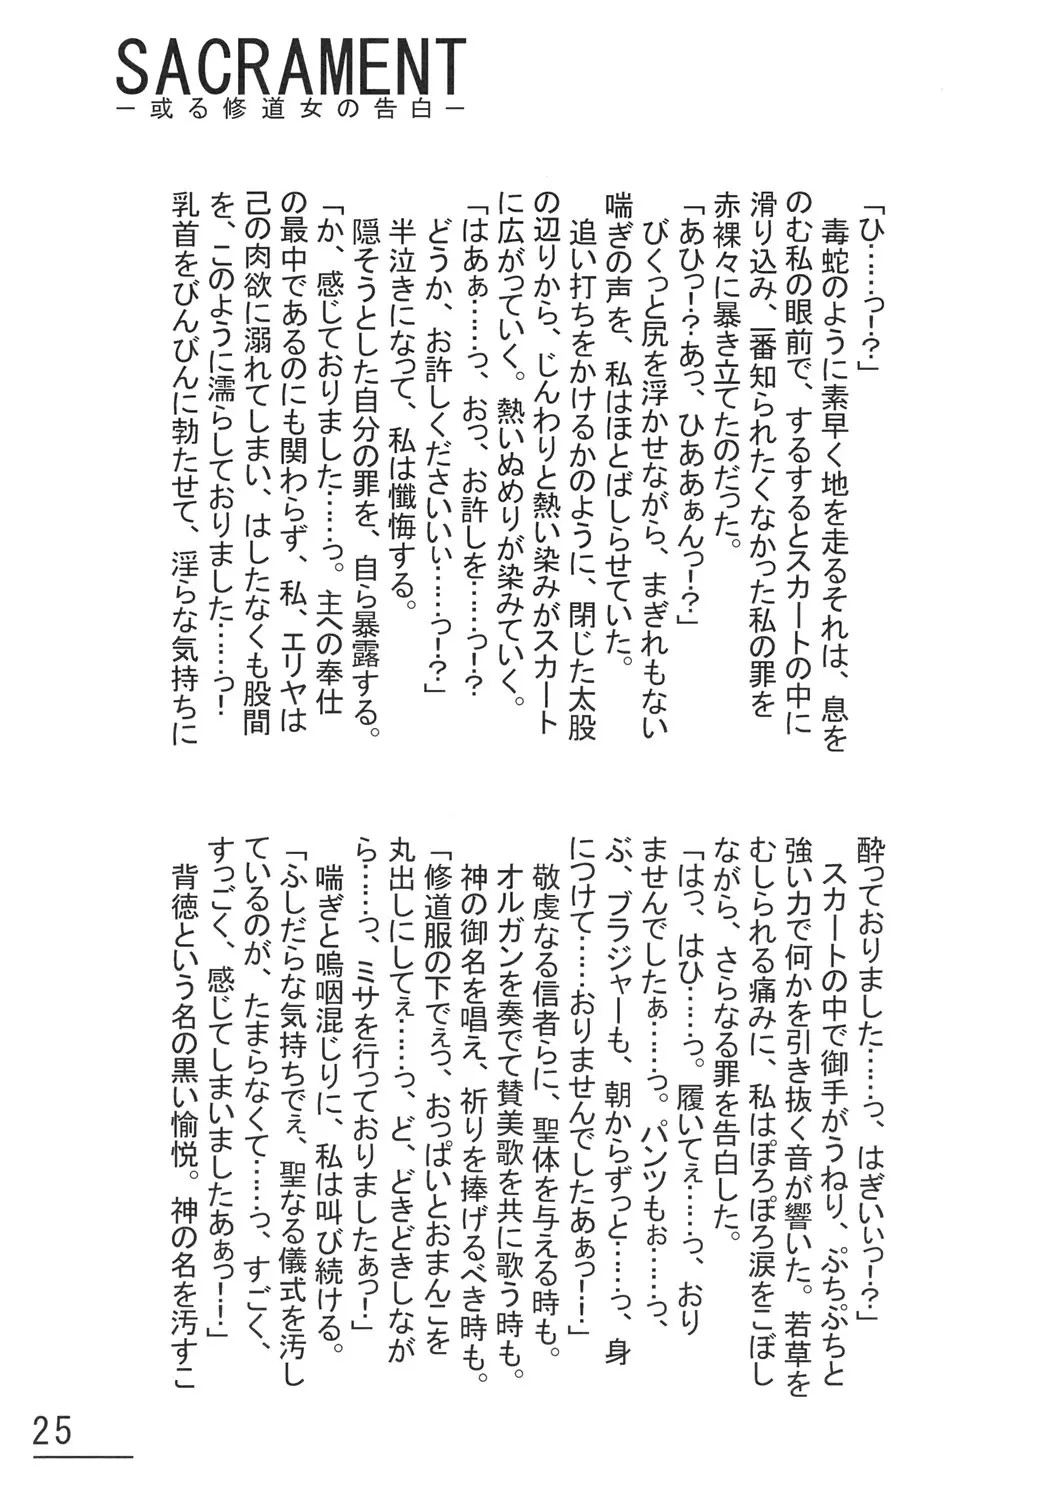 SACRAMENT
－或る修道女の告白－
「ひ……っ!?」
毒蛇のように素早く地を走るそれは、息を
のむ私の眼前で、するするとスカートの中に
滑り込み、一番知られたくなかった私の罪を
赤裸々に暴き立てたのだった。
「あひっ!?あっ、ひああぁんっ!?」
びくっと尻を浮かせながら、まぎれもない
喘ぎの声を、私はほとばしらせていた。
追い打ちをかけるかのように、閉じた太股
の辺りから、じんわりと熱い染みがスカート
に広がっていく。熱いぬめりが染みていく。
「はあぁ……っ、おっ、お許しを……っ!?
どうか、お許しくださいいぃ……っ!?」
半泣きになって、私は懺悔する。
隠そうとした自分の罪を、自ら暴露する。
「か、感じておりました……っ。主への奉仕
の最中であるのにも関わらず、私、エリヤは
己の肉欲に溺れてしまい、はしたなくも股間
を、このように濡らしておりました……っ!
乳首をびんびんに勃たせて、淫らな気持ちに
酔っておりました……っ、はぎいいっ!?」
スカートの中で御手がうねり、ぷちぷちと
強い力で何かを引き抜く音が響いた。若草を
むしられる痛みに、私はぽろぽろ涙をこぼし
ながら、さらなる罪を告白した。
「はっ、はひ……っ。履いてぇ……っ、おり
ませんでしたぁ……っ。パンツもぉ……っ、
ぶ、ブラジャーも、朝からずっと……っ、身
につけて……おりませんでしたあぁっ!!」
敬虔なる信者らに、聖体を与える時も。
オルガンを奏でて賛美歌を共に歌う時も。
神の御名を唱え、祈りを捧げるべき時も。
「修道服の下でぇっ、おっぱいとおまんこを
丸出しにしてぇ……っ、ど、どきどきしなが
ら……っ、ミサを行っておりましたぁっ!」
喘ぎと嗚咽混じりに、私は叫び続ける。
「ふしだらな気持ちでぇ、聖なる儀式を汚し
ているのが、たまらなくて……っ、すごく、
すっごく、感じてしまいましたあぁっ!!」
背徳という名の黒い愉悦。神の名を汚すこ
25